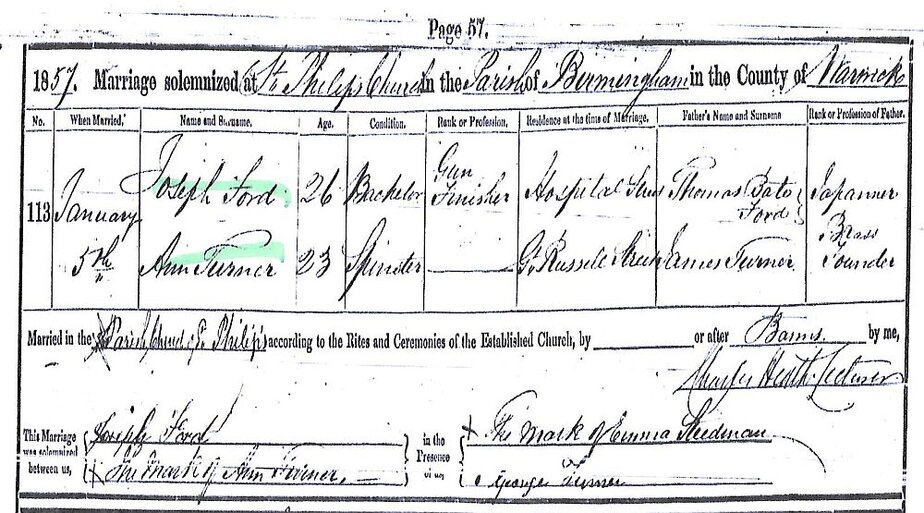 Page 57.
1857. Marriage solemnized at St Philip's Church in the Parish of Birmingham in the County of Warwick
No. When Married. Name and Surname. Age. Condition. Rank or Profession. Residence at the time of Marriage. Father's Name and Surname Rank or Profession of Father.
113 January 5th
Joseph Ford 26 Bachelor Gun Finisher Hospital Street Thomas Ford Japanner
Ann Turner 23 Spinster Gt Russell Street James Turner Brass Founder
Married in the Parish Church St Philip's according to the Rites and Ceremonies of the Established Church, by or after Banns by me,
Charles Heath Lecturer
This Marriage was solemnized between us,
Joseph Ford
X The mark of Ann Turner
in the Presence of us,
X The mark of Emma Steedman
George Turner